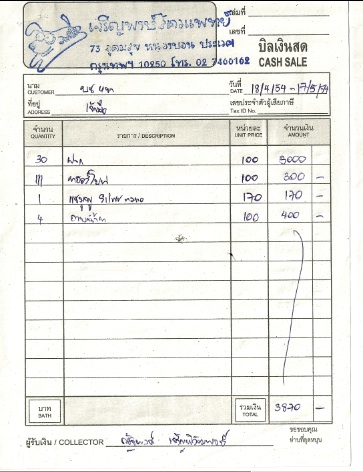 เล่มที่
เลขที่
เจริญพาณิช์สัตวแพทย์
73 อุดมสุข หนองบอน ประเวศ
กรุงเทพฯ 10250 โทร. 02 7400102
บิลเงินสด
CASH SALE
นาม
CUSTOMER
วันที่
DATE 18/4/54 - 17/5/54
ที่อยู่
ADDRESS
เลขประจำตัวผู้เสียภาษี
Tax ID No.
จำนวน
QUANTITY
รายการ / DESCRIPTION
หน่วยละ
UNIT PRICE
จำนวนเงิน
AMOUNT
30 ฝาก 100 3000
III 100 300 -
1 170 170 -
4 อาบน้ำ 100 400 -
บาท
BATH
รวมเงิน
TOTAL
3870 -
ผู้รับเงิน / COLLECTOR
ขอขอบคุณ
ท่านที่อุดหนุน